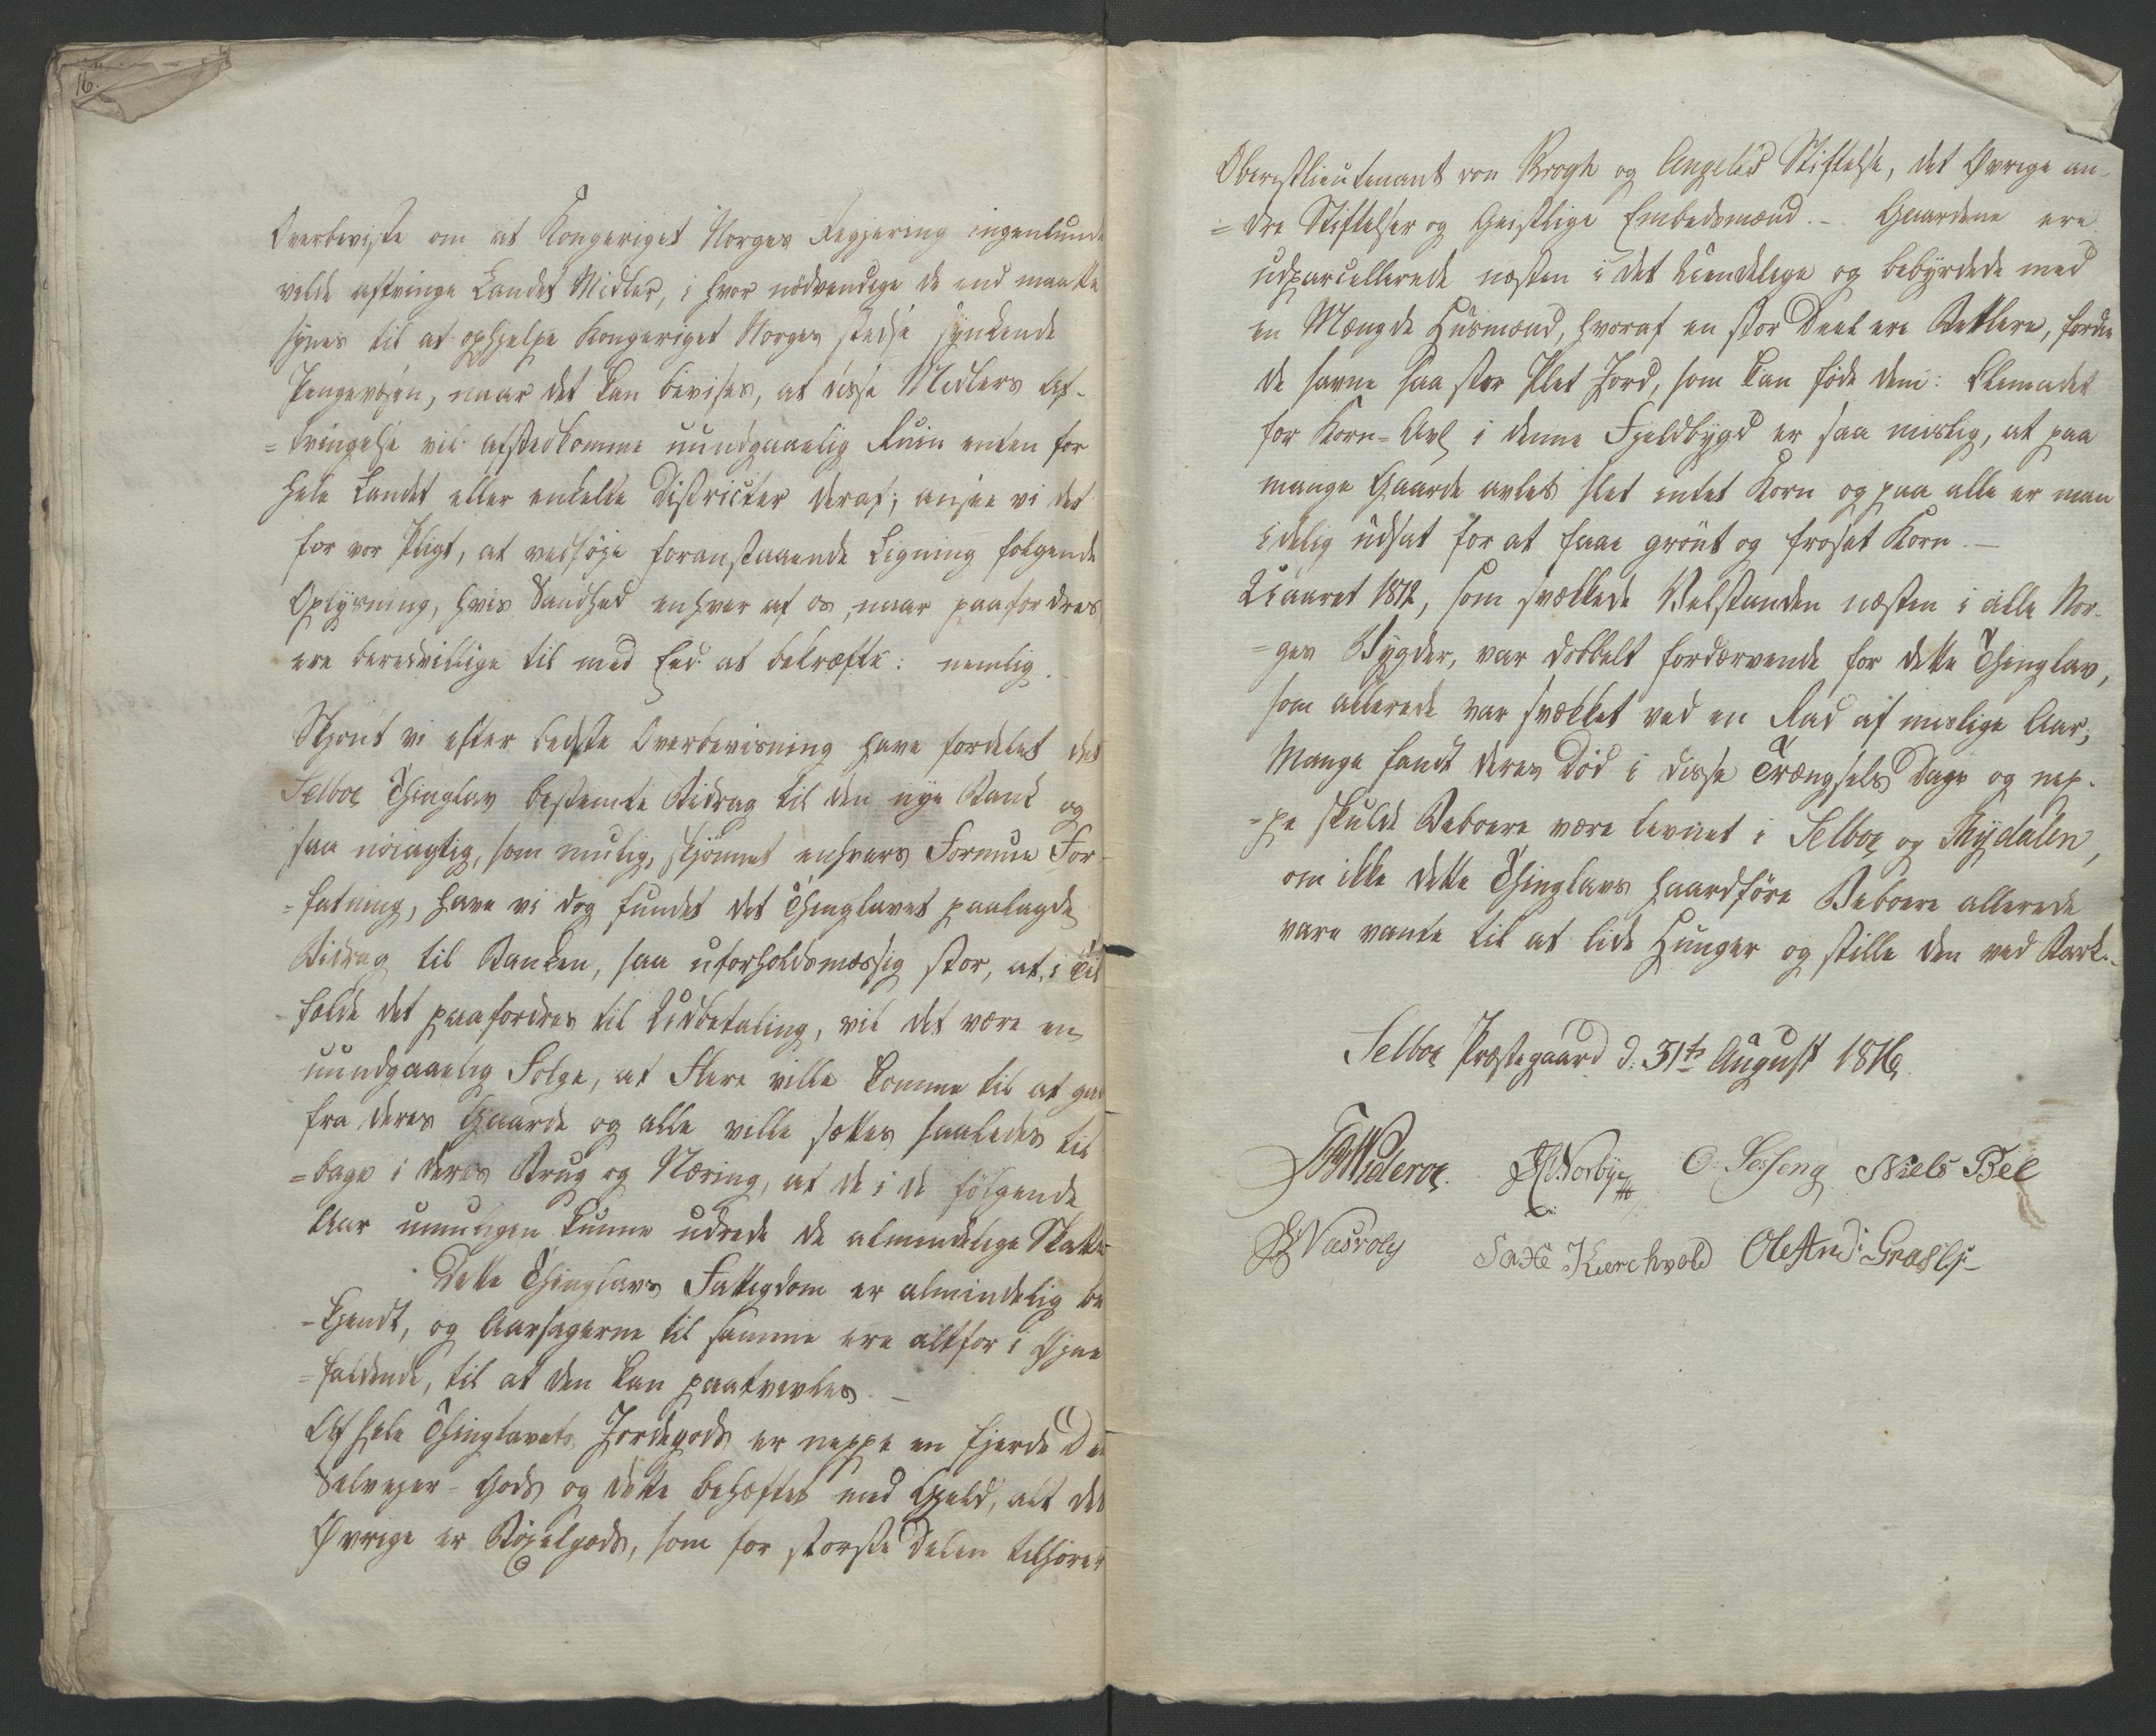 16.
Overbeviste om at Kongeriget Norges Regjering ingenlunde
vilde aftvinge Landet Midler, i hvor nödvendige de end maatte
synes til at ophjelpe Kongeriget Norges stedse synkende
Pengevæsen, naar det kan bevises, at disse Midlers Af-
=tvingelse vil afstedkomme uundgaaelig Ruin enten for
hele Landet eller enkelte Districter deraf; ansee vi det
for vor Pligt, at vedföje foranstaaende Ligning fölgende
Oplysning, hvis Sandhed enhver af os, naar paafordres
ere beredvillige til med Eed at bekræfte: nemlig.
Skjönt vi efter bedste Overbeviisning have fordelet det
Selboe Thinglav bestemte Bidrag til den nye Bank og
saa nöiagtig, som mulig, skjönnet enhvers Formue For-
=fatning, have vi dog fundet det Thinglavet paalagde
Bidrag til Banken, saa uforholdsmæssig stor, at, i Til
=fælde det paafordres til Udbetaling, vil det være en
uundgaaelig Fölge, at Flere ville komme til at gaa
fra deres Gaarde og alle ville sættes saaledes til
=bage i deres Brug og Næring, at de i de fölgende
Aar umuligen kunne udrede de almindelige Skatte
Dette Thinglavs Fattigdom er almindelig be
=kjendt, og Aarsagerne til samme ere altfor i Öjne
=faldende, til at den kan paatvivles. –
Af hele Thinglavets Jordegods er neppe en fjerde Deel
Selvejer-Gods og dette behæftet med Gjeld, alt det
Övrige er Böxelgods, som for störste Delen tilhörer
Oberstlieutenant von Krogh og Angells Stiftelse, det Övrige an-
=dre Stiftelser og Geistlige Embedsmænd. – Gaardene ere
udparcellerede næsten i det Uendelige og bebyrdede med
en Mængde Huusmænd, hvoraf en stor Deel ere Betlere, fordi
de savne saa stor Plet Jord, som kan föde dem: Climadet
for Korn-Avl i denne Fjeldbygd er saa mislig, at paa
mange Gaarde avles slet intet Korn og paa alle er man
idelig udsat for at faae grönt og froset Korn. –
Uaaret 1812, som svækkede Velstanden næsten i alle Nor-
=ges Bygder, var dobbelt fordærvende for dette Thinglav,
som allerede var svækket ved en Rad af mislige Aar;
Mange fandt deres Död i disse Trængsels Dage og nep-
=pe skulde Beboere være levnet i Selboe og Thydalen,
om ikke dette Thinglavs haardföre Beboere allerede
vare vante til at lide Hunger og stille den ved Bark. –
Selboe Præstegaard d: 31te August 1816
Widerøe. Norbye O: Sesseng Niels Bel
Ole And: Grasli